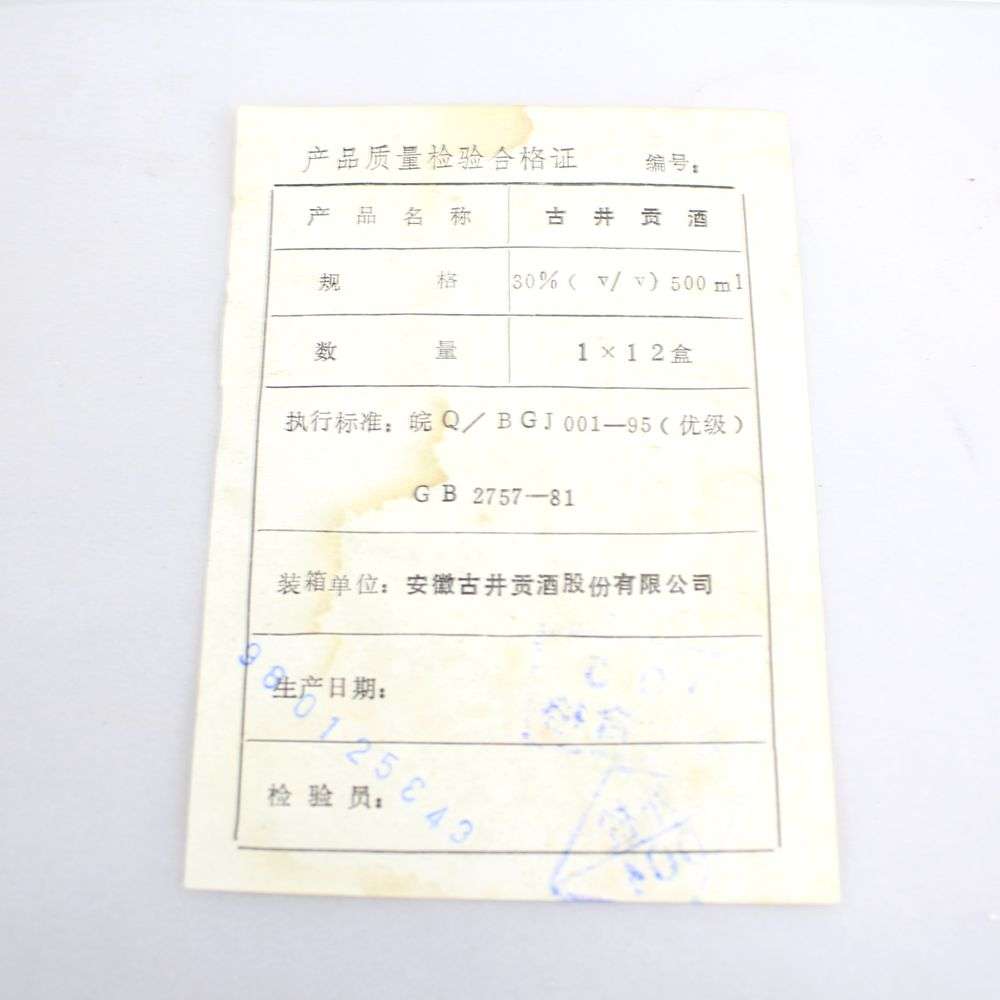 产品质量检验合格证 编号：
产品名称 古井贡酒
规格 30%(v/v)500ml
数量 1×12盒
执行标准：皖Q/BGJ001—95(优级)
GB 2757—81
装箱单位：安徽古井贡酒股份有限公司
生产日期：
检验员：